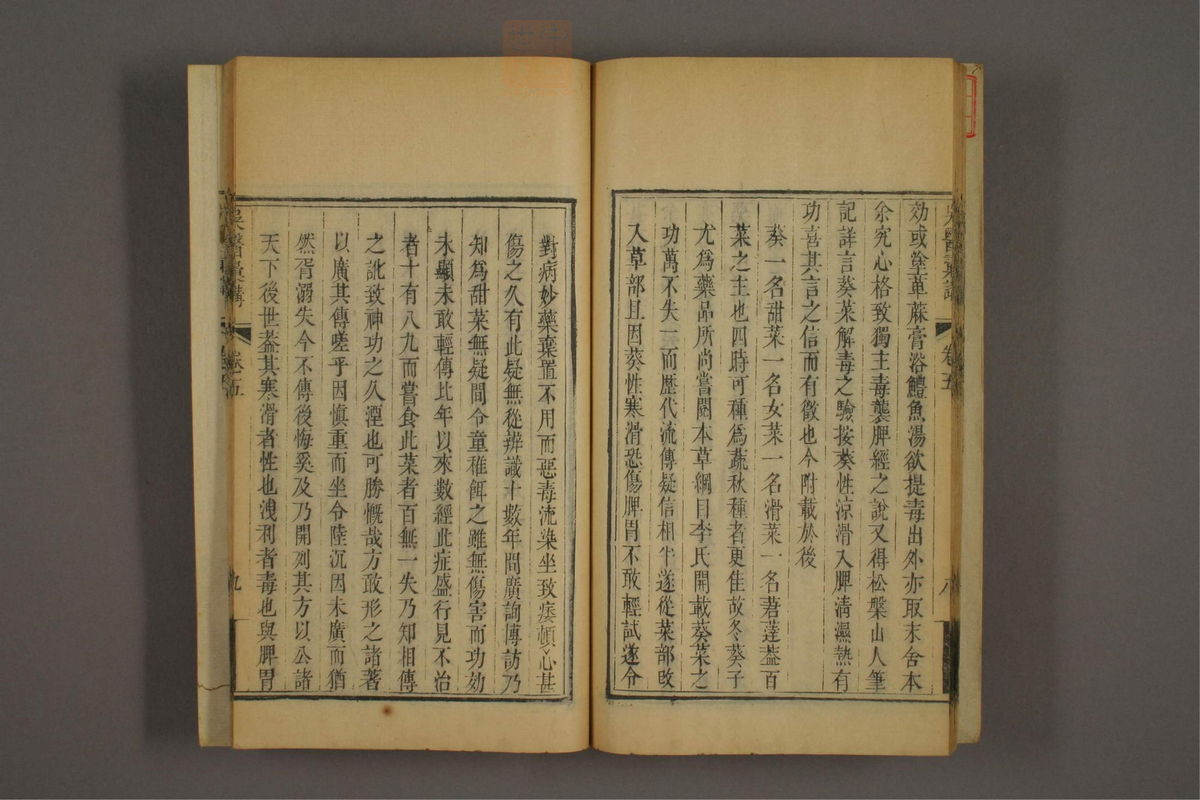 効或塗萆蔴膏浴鱧魚湯欲提毒出外亦取末舍本
余究心格致獨主毒襲脾經之說又得松槃山人筆
記詳言葵菜解毒之驗按葵性涼滑入脾清濕熱有
功喜其言之信而有徵也今附載於後
葵一名甜菜一名女菜一名滑菜一名莙薘葢百
菜之主也四時可種爲蔬秋種者更佳故冬葵子
尤爲藥品所尚嘗閱本草綱目李氏開載葵菜之
功萬不失一而歷代流傳疑信相半遂從菜部改
入草部且因葵性寒滑恐傷脾胃不敢輕試遂令
吳醫彙講 卷五 八
對病妙藥棄置不用而惡毒流染坐致痿頓心甚
傷之久有此疑無從辨識十數年間廣詢博訪乃
知爲甜菜無疑間令童稚餌之雖無傷害而功効
未顯未敢輕傳比年以來數經此症盛行見不治
者十有八九而嘗食此菜者百無一失乃知相傳
之訛致神功之久湮也可勝慨哉方敢形之諸著
以廣其傳嗟乎因慎重而坐令陸沉因未廣而猶
然胥溺失今不傳後悔奚及乃開列其方以公諸
天下後世葢其寒滑者性也洩利者毒也與脾胃
吳醫彙講 卷五 九